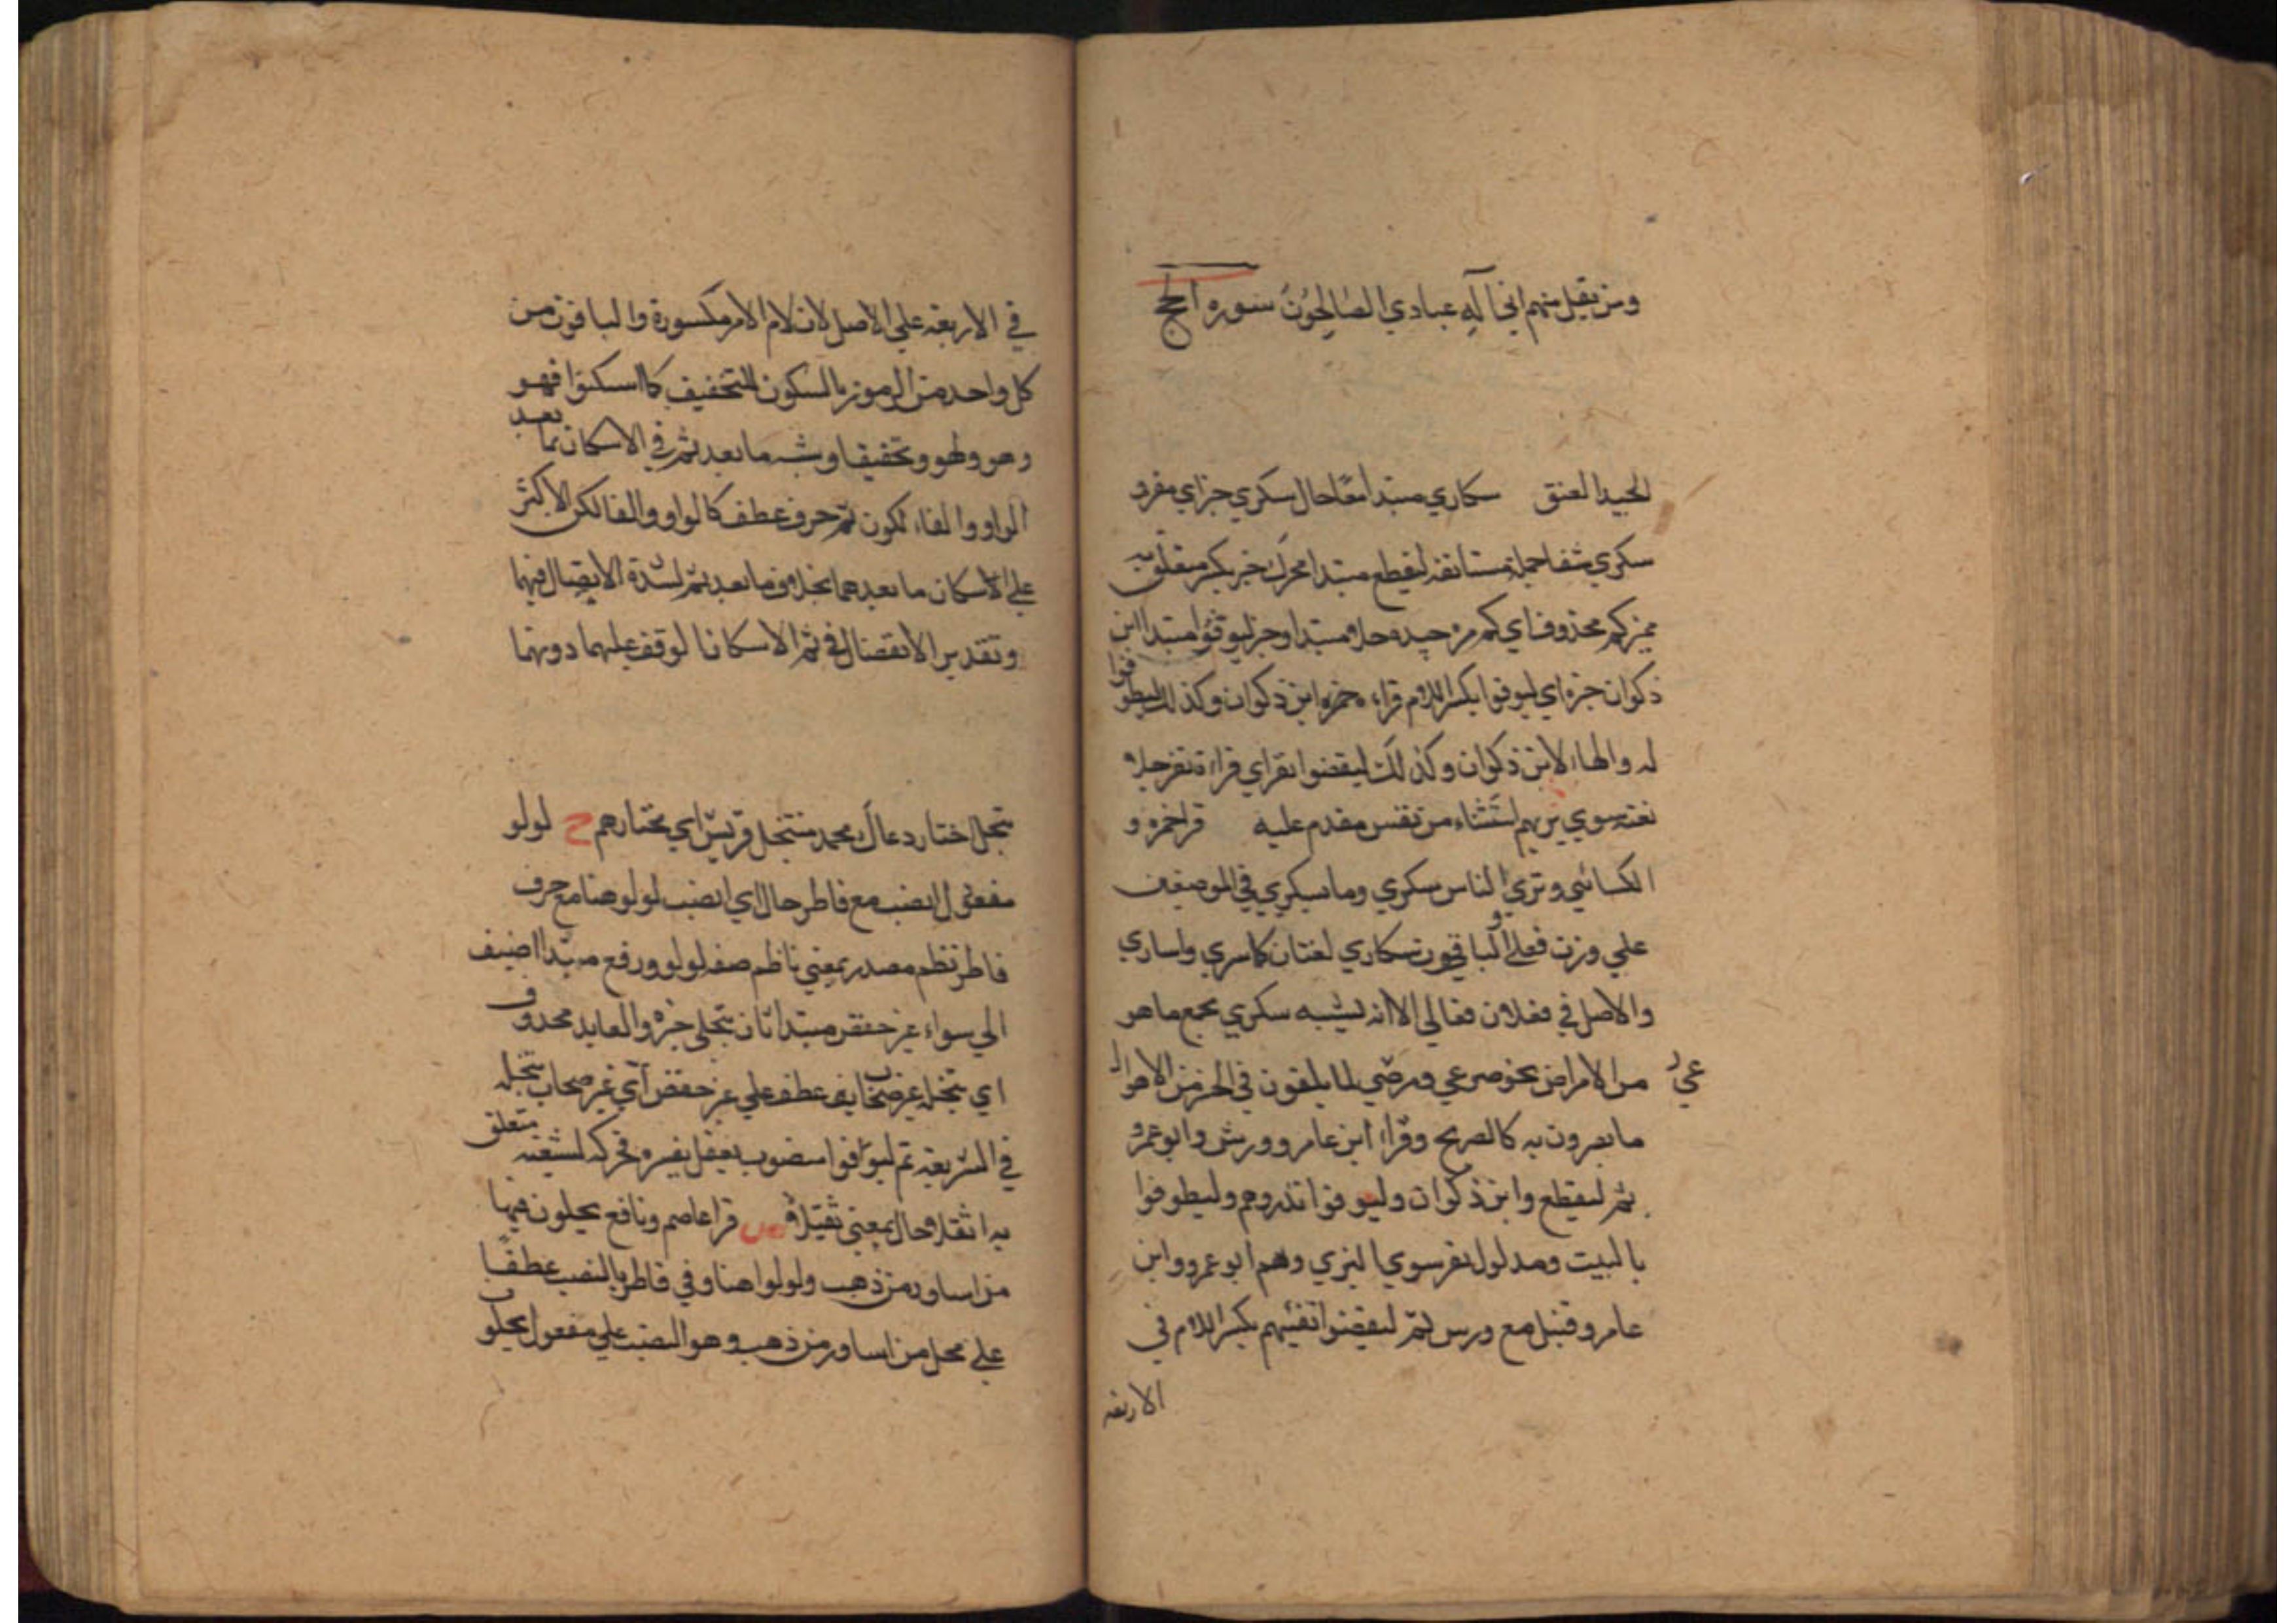 ومن يقل منهم اني اله عبادي الصالحون سورة الحج
الجيد العنق سكاري مبتدا معا حال سكري خبر اي مفرد
سكري شفا جملة مستانفة ليقطع مبتدا محرك خبر بكسر متعلق به
مميزكم محذوف اي كم مرة جيده حلا مبتدا وخبر ليوفوا مبتدا ابن
ذكوان خبره اي ليوفوا بكسر اللام قراءه ابن ذكوان وكذلك ليطوفوا
له والهاء لابن ذكوان وكذلك ليقضوا نفر اي قراءة نفر جلا
نعته سوي بزيهم استثناء من نفس مقدم عليه قرا حمزه و
الكسائي وتري الناس سكري وما سكري في الموضعين
علي وزن فعلي والباقون سكاري لغتان كاسري واساري
والاصل في فعلان فعالي الا انه يشبه سكري بجمع ما هو
من الامراض نحو صرعي ومرضي لما يلقون في الحزن من الاهوال
ما يصرون به كالصريح وقرا ابن عامر وورش وابو عمرو
ثم ليقطع وابن ذكوان وليوفوا نذروهم وليطوفوا
بالبيت ومدلول نفر سوي البزي وهم ابو عمرو وابن
عامر وقنبل مع ورس ثم ليقضوا تفثهم بكسر اللام في
الاربعه
في الاربعه علي الاصل لان لام الامر مكسورة والباقون من
كل واحد من الرموز بالسكون للتخفيف كما اسكنوا فهو
وهو ولهو وتخفيفا وشبه ما بعد ثم في الاسكان بما بعد
الواو والفاء لكون ثم حرف عطف كالواو والفا لكن الاكثر
علي الاسكان ما بعدهما بخلاف ما بعد ثم لشدة الاتصال فيهما
وتقدير الانفصال في ثم الاسكانا لوقف عليهما دونهما
تنخل اختار دعال محمد منتخل قريش اي مختارهم ح لولو
مفعول انصب مع فاطر حال اي انصب لولو هنا مع حرف
فاطر نظم مصدر بمعني ناظم صفه لولو ورفع مبتدا اضيف
الي سواء غير حفص مبتدا ثان تنخل خبره والعايد محذوف
اي تنخله غير صحاب عطف علي غير حفص اي غير صحاب تنخله
في الشريعه ثم ليوفوا منصوب بفعل يفسره فحركه لشعبه متعلق
به اثقلا حال بمعني ثقيلا ص قرا عاصم ونافع يحلون فيها
من اساور من ذهب ولولوا هنا وفي فاطر بالنصب عطفا
علي محل من اساور من ذهب وهو النصب علي مفعول يحلو